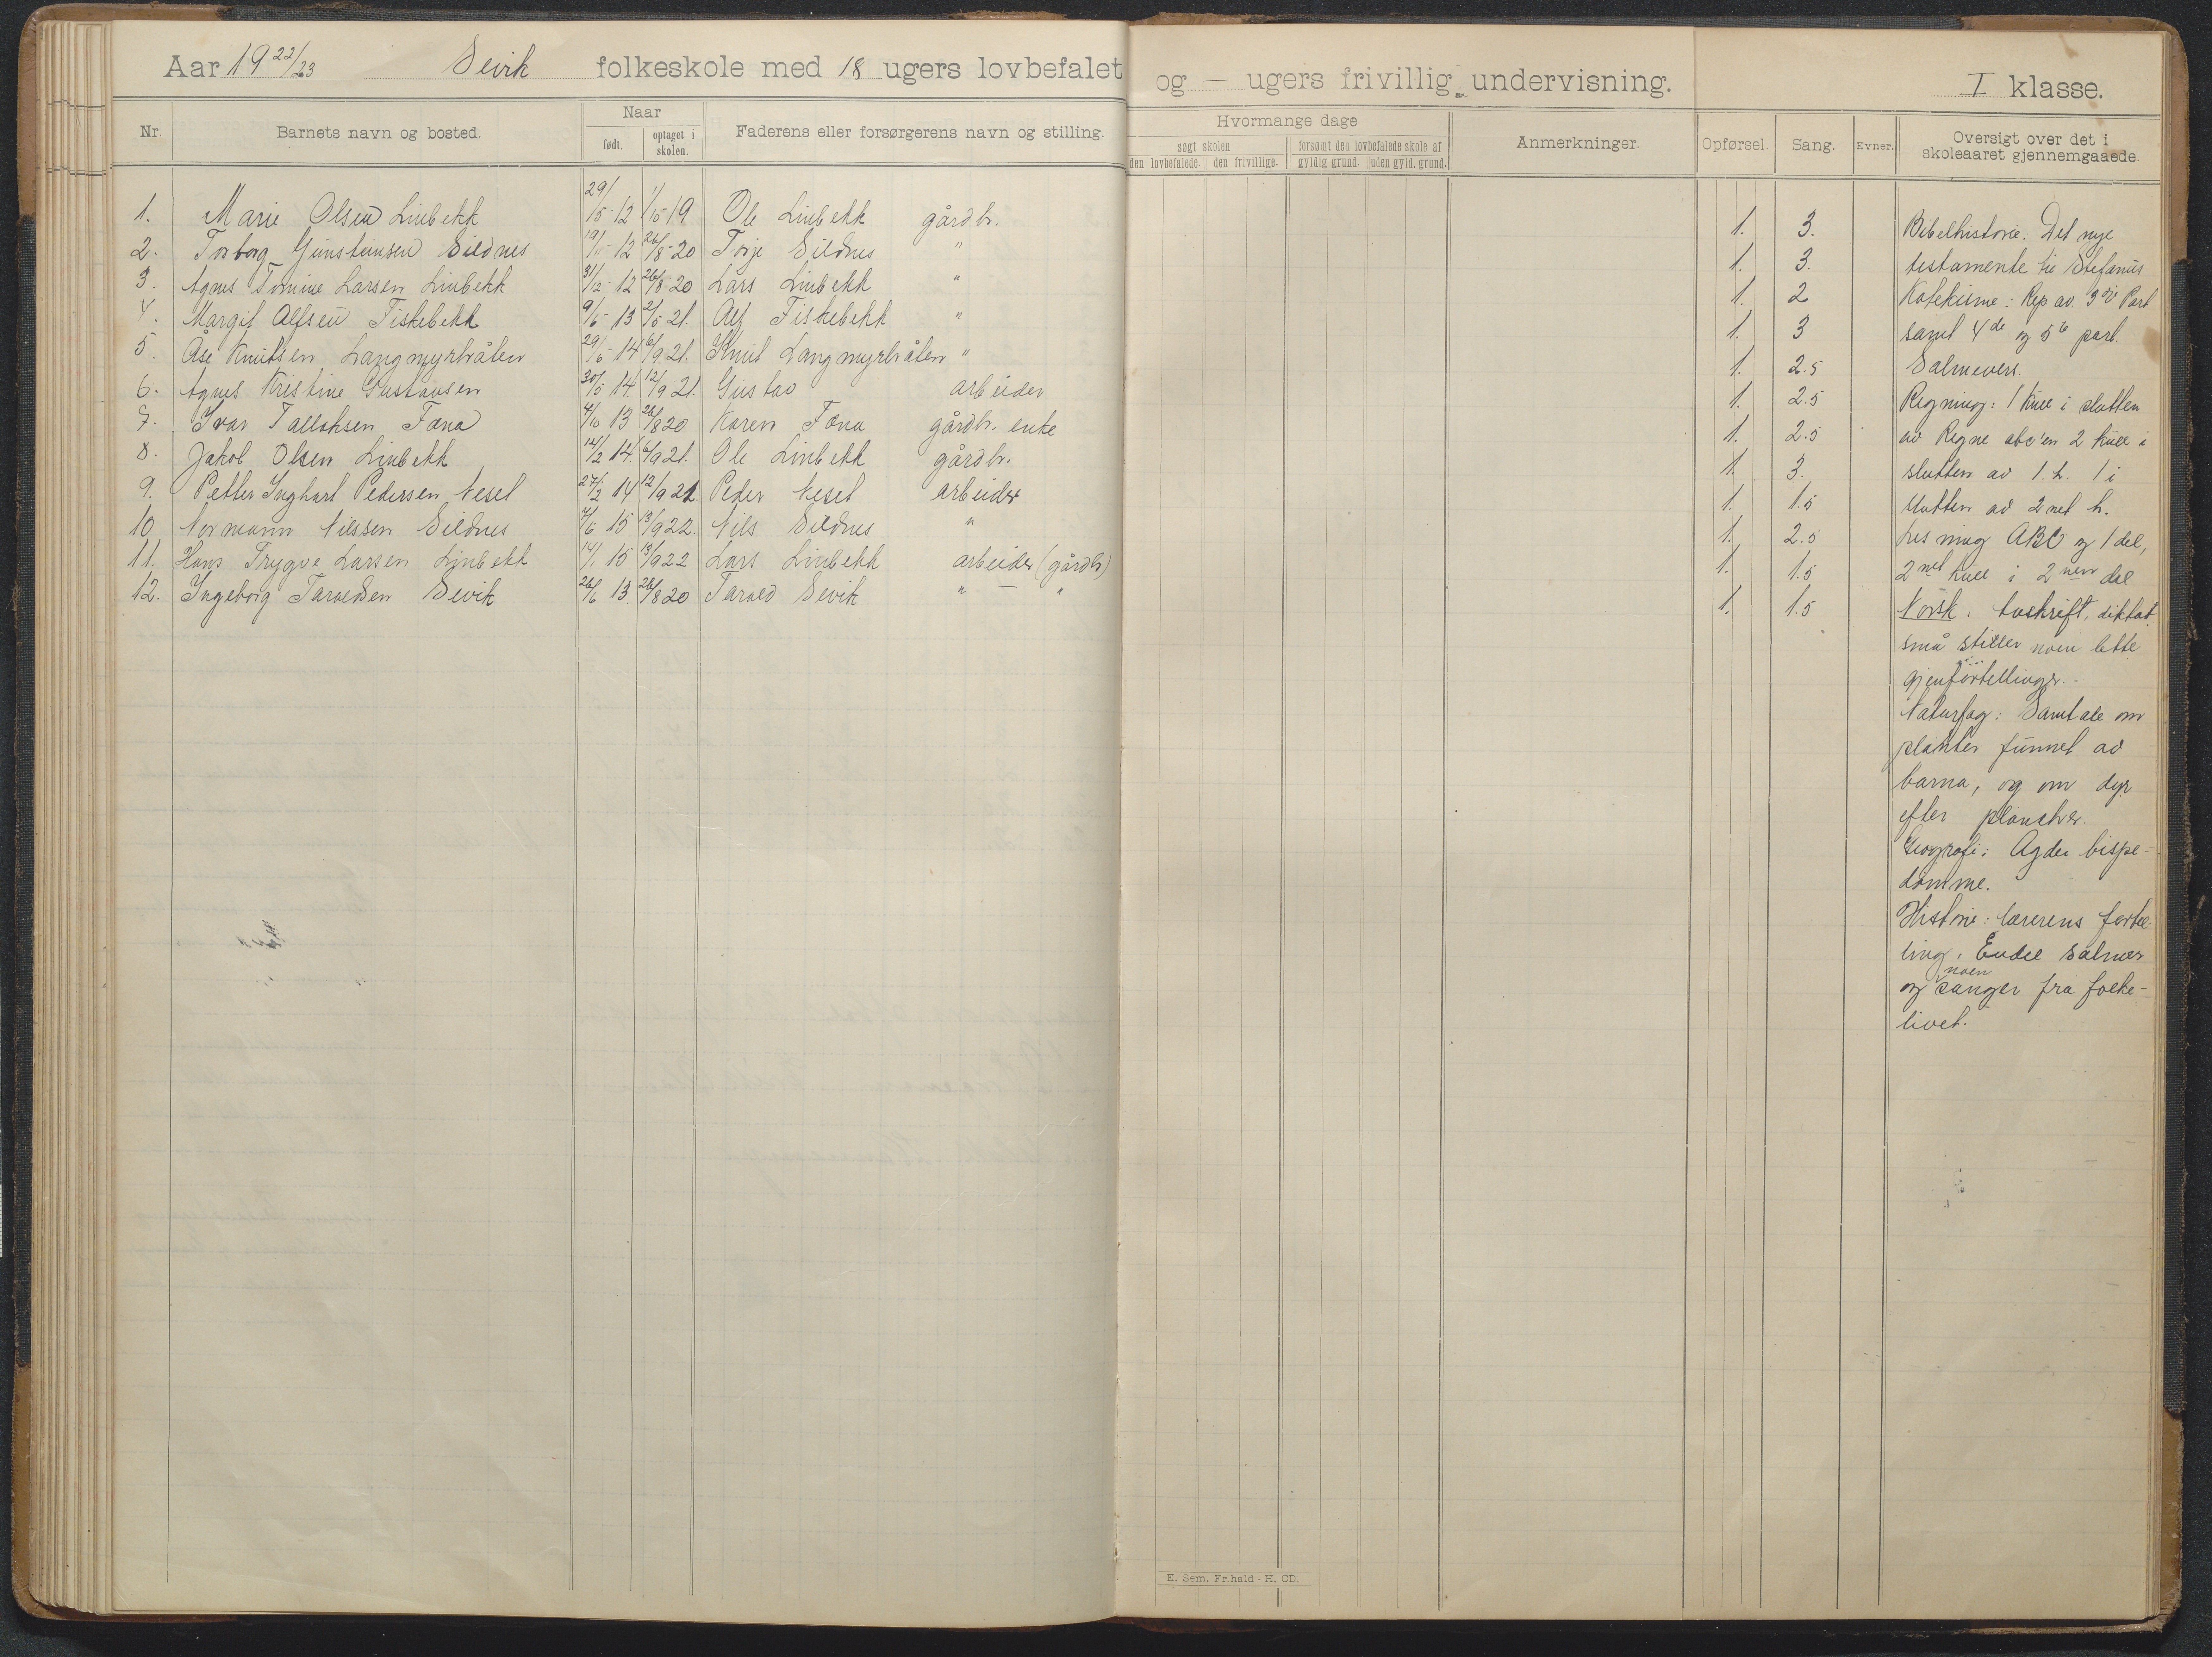 Aar 19 22/23 Sevik folkeskole med 18 ugers lovbefalet og — ugers frivillig undervisning. I klasse.
Nr. Barnets navn og bosted. Naar født. optaget i skolen. Faderens eller forsørgerens navn og stilling. Hvormange dage søgt skolen den lovbefalede. den frivillige. forsømt den lovbefalede skole af gyldig grund. uden gyld. grund. Anmerkninger. Opførsel. Sang. Evner. Oversigt over det i skoleaaret gjennemgaaede.
1. Marie Olsen Linbekk 29/5-12 1/5 19 Ole Linbekk gårdbr. 1. 3.
2. Torborg Gunsteinsen Sildnes 12 26/8-20 Torje Sildnes " 1. 3.
3. Agnes Tomine Larsen Linbekk 31/12 12 26/8-20 Lars Linbekk " 1. 2
4. Margit Alfsen Fiskebekk 9/5-13 2/5 21. Alf Fiskebekk " 1. 3
5. Åse Knutsen Langmyrbråten 29/6-14 6/9 21. Knut Langmyrbråten " 1. 2.5
6. Agnes Kristine Gustavsen 20/5 14. 12/9-21. Gustav arbeider 1. 2.5
7. Ivar Tallaksen Fona 4/10 13 26/8 20 Karen Fona gårdbr. enke 1. 2.5
8. Jakob Olsen Linbekk 14/2 14. 6/9 21. Ole Linbekk gårdbr. 1. 3.
9. Petter Inghart Pedersen Neset 27/2 14 12/9 21 Peder Neset arbeider 1. 1.5
10 Normann Nilssen Sildnes 4/6 15 13/9 22. Nils Sildnes " 1. 2.5
11. Hans Trygve Larsen Linbekk 14/1 15 13/9 22 Lars Linbekk arbeider (gårdb) 1. 1.5
12. Ingeborg Taraldsen Sevik 26/6 13. 26/8 20 Tarald Sevik " — " 1. 1.5
Bibelhistorie: Det nye
testamente til Stefanus
Katekisme: Rep av. 3die Part
samt 4de og 5te part.
Salmevers.
Regning: 1 kull i slutten
av Regne abc'en 2 kull i
slutten av 1. h. 1 i
slutten av 2net h.
Lesning ABC og 1 del,
2net kull i 2nen del
Norsk. Avskrift, diktat
små stiler noen lette
gjenfortellinger.
Naturfag: Samtale om
planter funnet av
barna, og om dyr
efter plancher.
Geografi: Agder bispe-
dømme.
Historie: lærerens fortel
ling. Endel salmer
og noen sanger fra folke-
livet.
E. Sem. Fr.hald - H. CD.